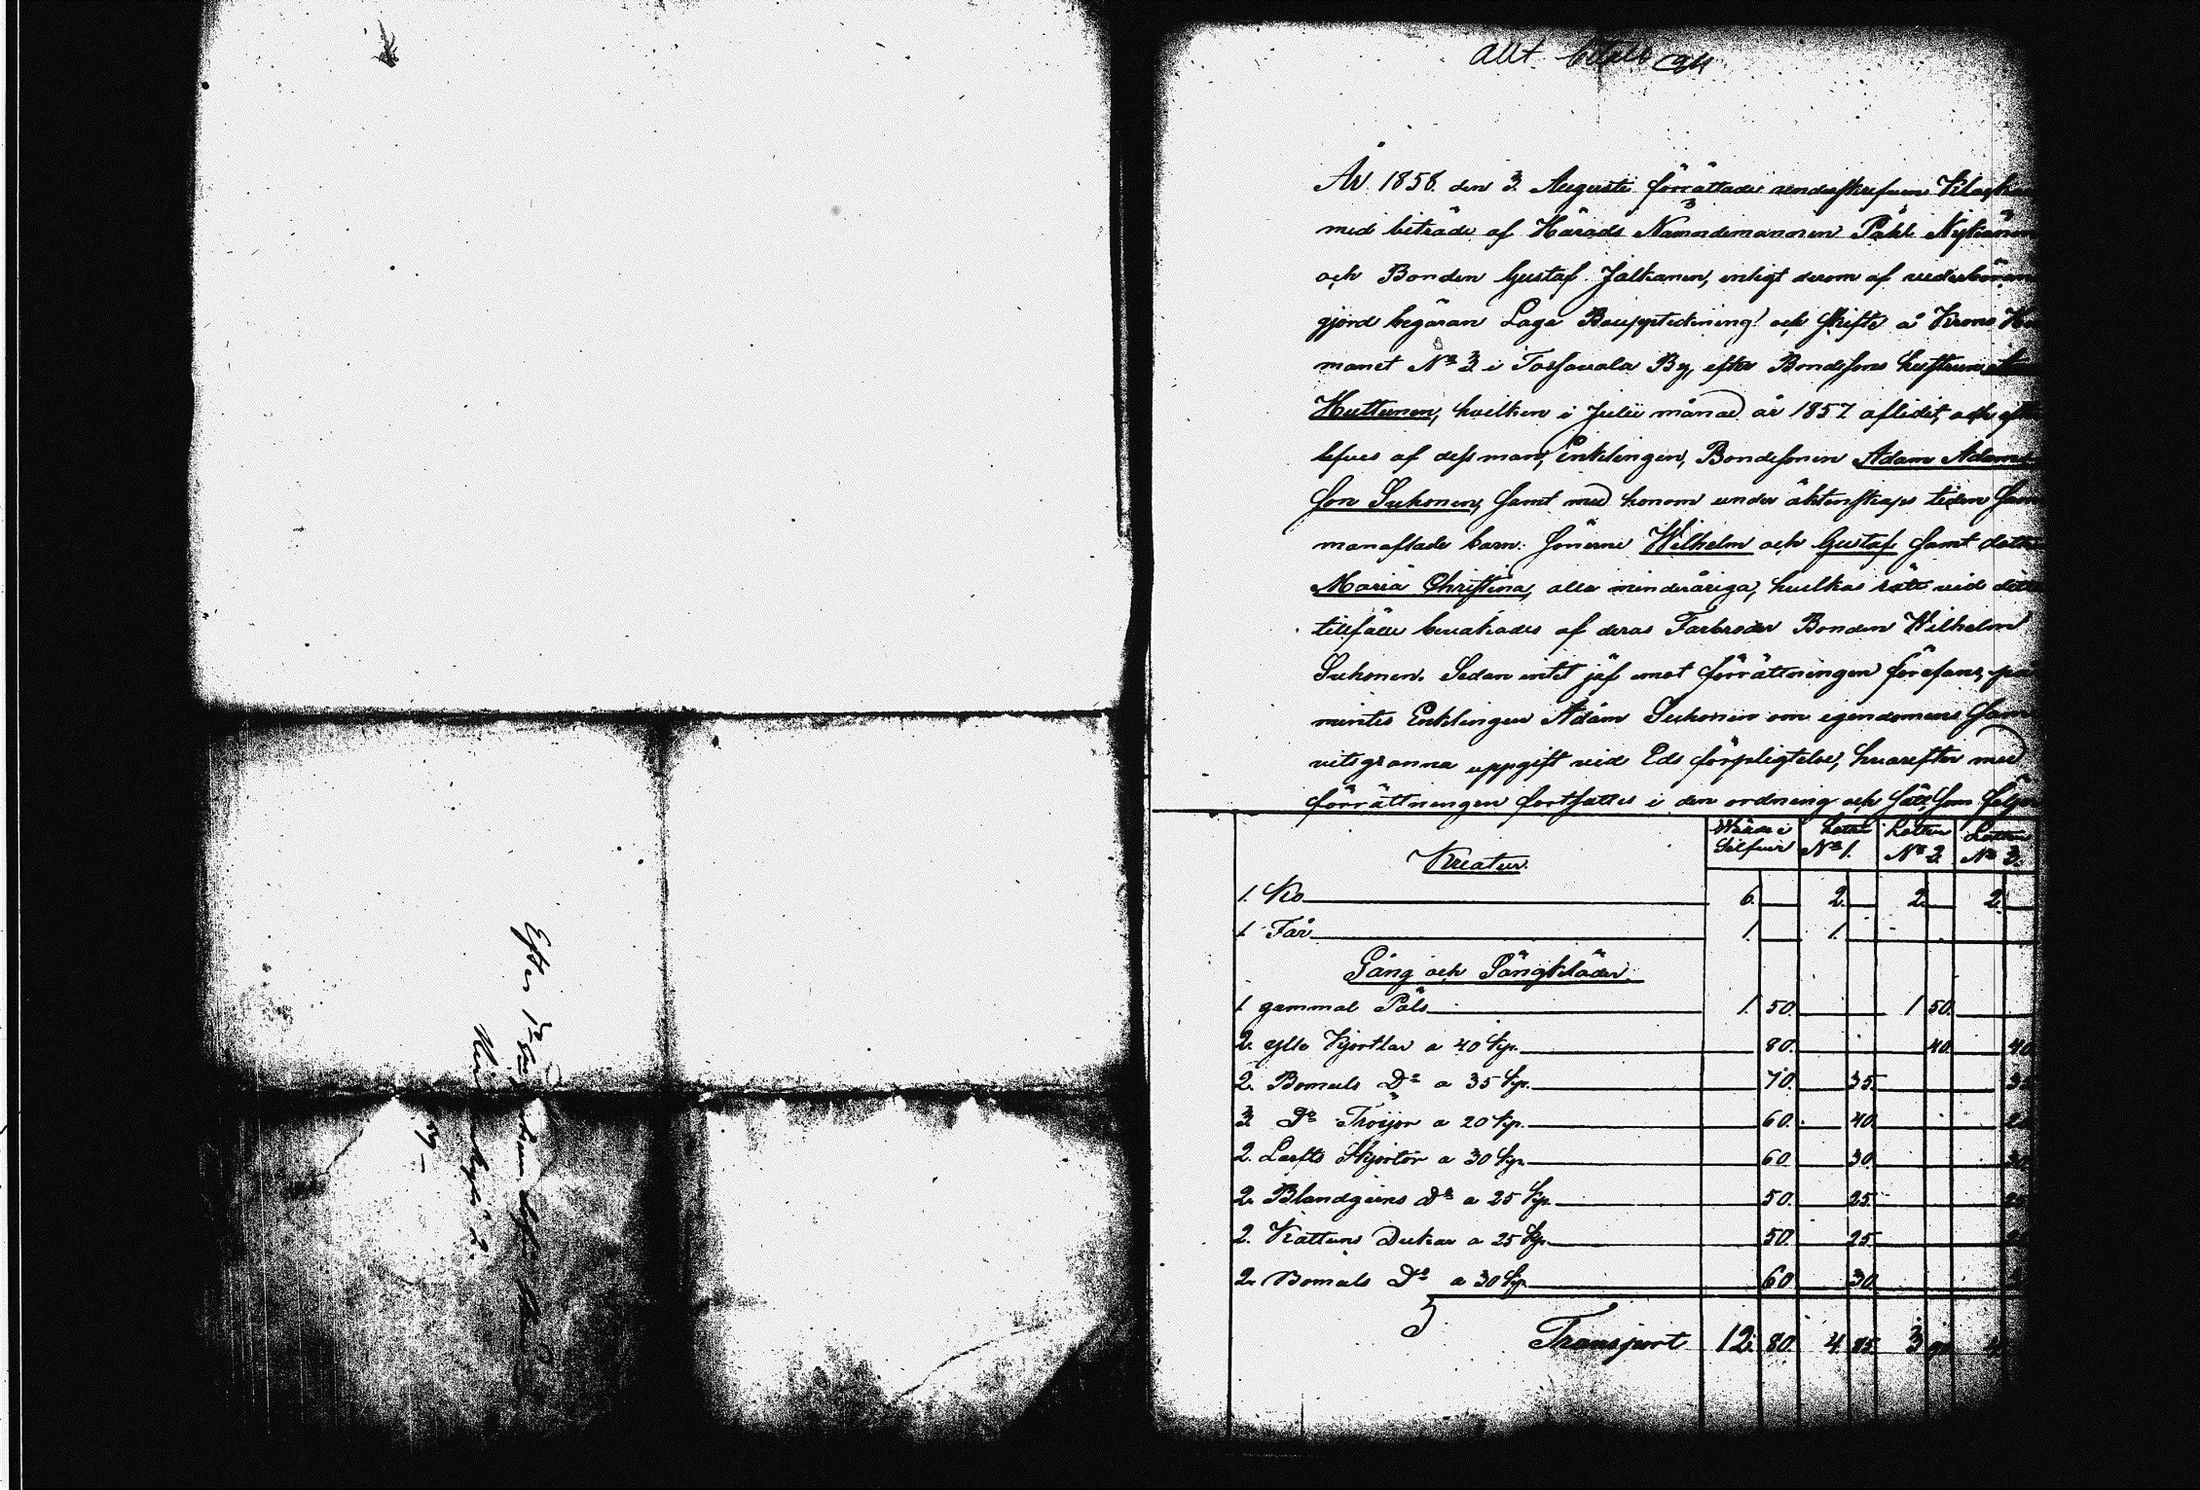 allt betalt
År 1858 den 3 Augusti förrättade undertecknare
med biträde af Härads Nämndemannen Påhl Nykänen
och Bonden Gustaf Jalkanen, enligt derom af vederbörande
gjord begäran Laga Bouppteckning och skifte å Krono He
manet N° 3 i Tossavala By, efter Bondesons hustrun
Huttunen, hvilken i Julii månad år 1857 aflidit, och efter
lefves af dess man, Enklingen, Bondesonen Adam Adams
son Suhonen, samt med honom under äktenskaps tiden sam
manaflade barn: sönerne Wilhelm och Gustaf samt dottren
Maria Christina, alla minderåriga, hvilkas rätt vid detta
tillfälle bevakades af deras Farbroder Bonden Wilhelm
Suhonen. Sedan intet jäf emot förrättningen förefans, på
mintes Enklingen Adam Suhonen om egendomens sam
vetsgranna uppgift vid Eds förpligtelse, hvarefter med
förrättningen fortsattes i den ordning och sätt, som följer
Kreatur. Värde i Silfver Lotten N° 1. Lotten N° 2. Lotten N° 3.
1. Ko 6. 2. 2. 2.
1. Får 1. 1.
Säng och Gångkläder.
1. gammal Päls 1. 50. 1 50.
2. ylle Kjortlar a 40 Kp. 80. 40. 40
2. Bomuls D° a 35 Kp. 70. 35. 35
3. D° Tröijor a 20 Kp. 60. 40. 20
2. Lärfts Skjortor a 30 Kp. 60. 30. 30
2. Blandgarns D° a 25 Kp. 50. 25. 25
2. Kattuns Dukar a 25 Kp. 50. 25.
2. Bomuls D° a 30 Kp. 60. 30.
Transport 12. 80. 4. 85. 3 90. 4
Efter